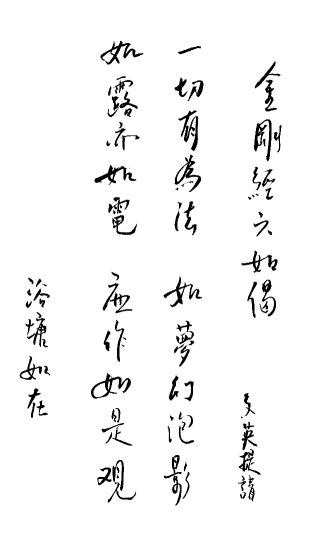 金剛經六如偈
英提請
一切有為法 如夢幻泡影
如露亦如電 應作如是观
浴塘如在